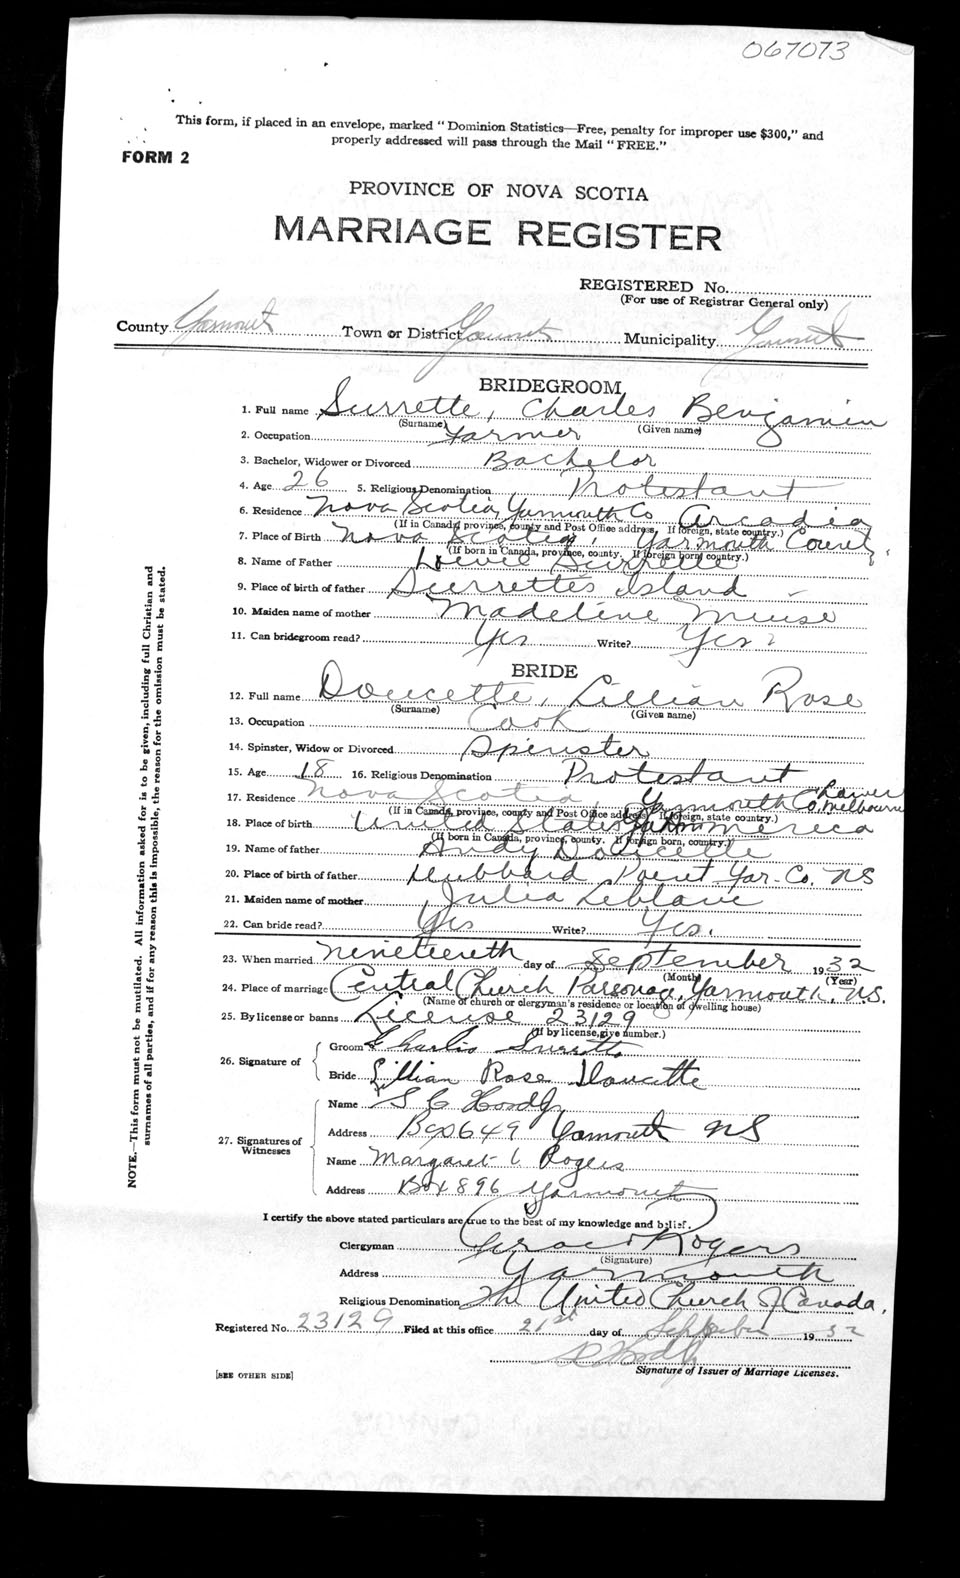 067073
This form, if placed in an envelope, marked "Dominion Statistics—Free, penalty for improper use $300," and
properly addressed will pass through the Mail "FREE."
FORM 2
PROVINCE OF NOVA SCOTIA
MARRIAGE REGISTER
REGISTERED No.
(For use of Registrar General only)
County Yarmouth Town or District Yarmouth Municipality Yarmouth
BRIDEGROOM
1. Full name Surrette, Charles Benjamin
(Surname) (Given name)
2. Occupation Farmer
3. Bachelor, Widower or Divorced Bachelor
4. Age 26 5. Religious Denomination Protestant
6. Residence Nova Scotia, Yarmouth Co Arcadia
(If in Canada, province, county and Post Office address, If foreign, state country.)
7. Place of Birth Nova Scotia, Yarmouth County
(If born in Canada, province, county. If foreign born, country.)
8. Name of Father Surrette
9. Place of birth of father Surrette's Island
10. Maiden name of mother Madeline Muise
11. Can bridegroom read? Yes Write? Yes
BRIDE
12. Full name Doucette, Lillian Rose
(Surname) (Given name)
13. Occupation Cook
14. Spinster, Widow or Divorced Spinster
15. Age 18 16. Religious Denomination Protestant
17. Residence Nova Scotia, Yarmouth Co, Lower Melbourne
(If in Canada, province, county and Post Office address, If foreign, state country.)
18. Place of birth United States America
(If born in Canada, province, county. If foreign born, country.)
19. Name of father Andy Doucette
20. Place of birth of father Hubbard Point Yar. Co. NS
21. Maiden name of mother Julia Leblanc
22. Can bride read? Yes Write? Yes.
23. When married nineteenth day of September 1932
(Month) (Year)
24. Place of marriage Central Church Parsonage, Yarmouth, N.S.
(Name of church or clergyman's residence or location of dwelling house)
25. By license or banns License 23129
(If by license, give number.)
26. Signature of
Groom Charlie Surrette
Bride Lillian Rose Doucette
27. Signatures of Witnesses
Name S C Hood
Address Box 649 Yarmouth NS
Name Margaret Rogers
Address Box 896 Yarmouth
I certify the above stated particulars are true to the best of my knowledge and belief.
Clergyman Rogers
(Signature)
Address Yarmouth
Religious Denomination The United Church of Canada.
Registered No. 23129 Filed at this office 21st day of September 1932
Signature of Issuer of Marriage Licenses.
[SEE OTHER SIDE]
NOTE.—This form must not be mutilated. All information asked for is to be given, including full Christian and
surnames of all parties, and if for any reason this is impossible, the reason for the omission must be stated.